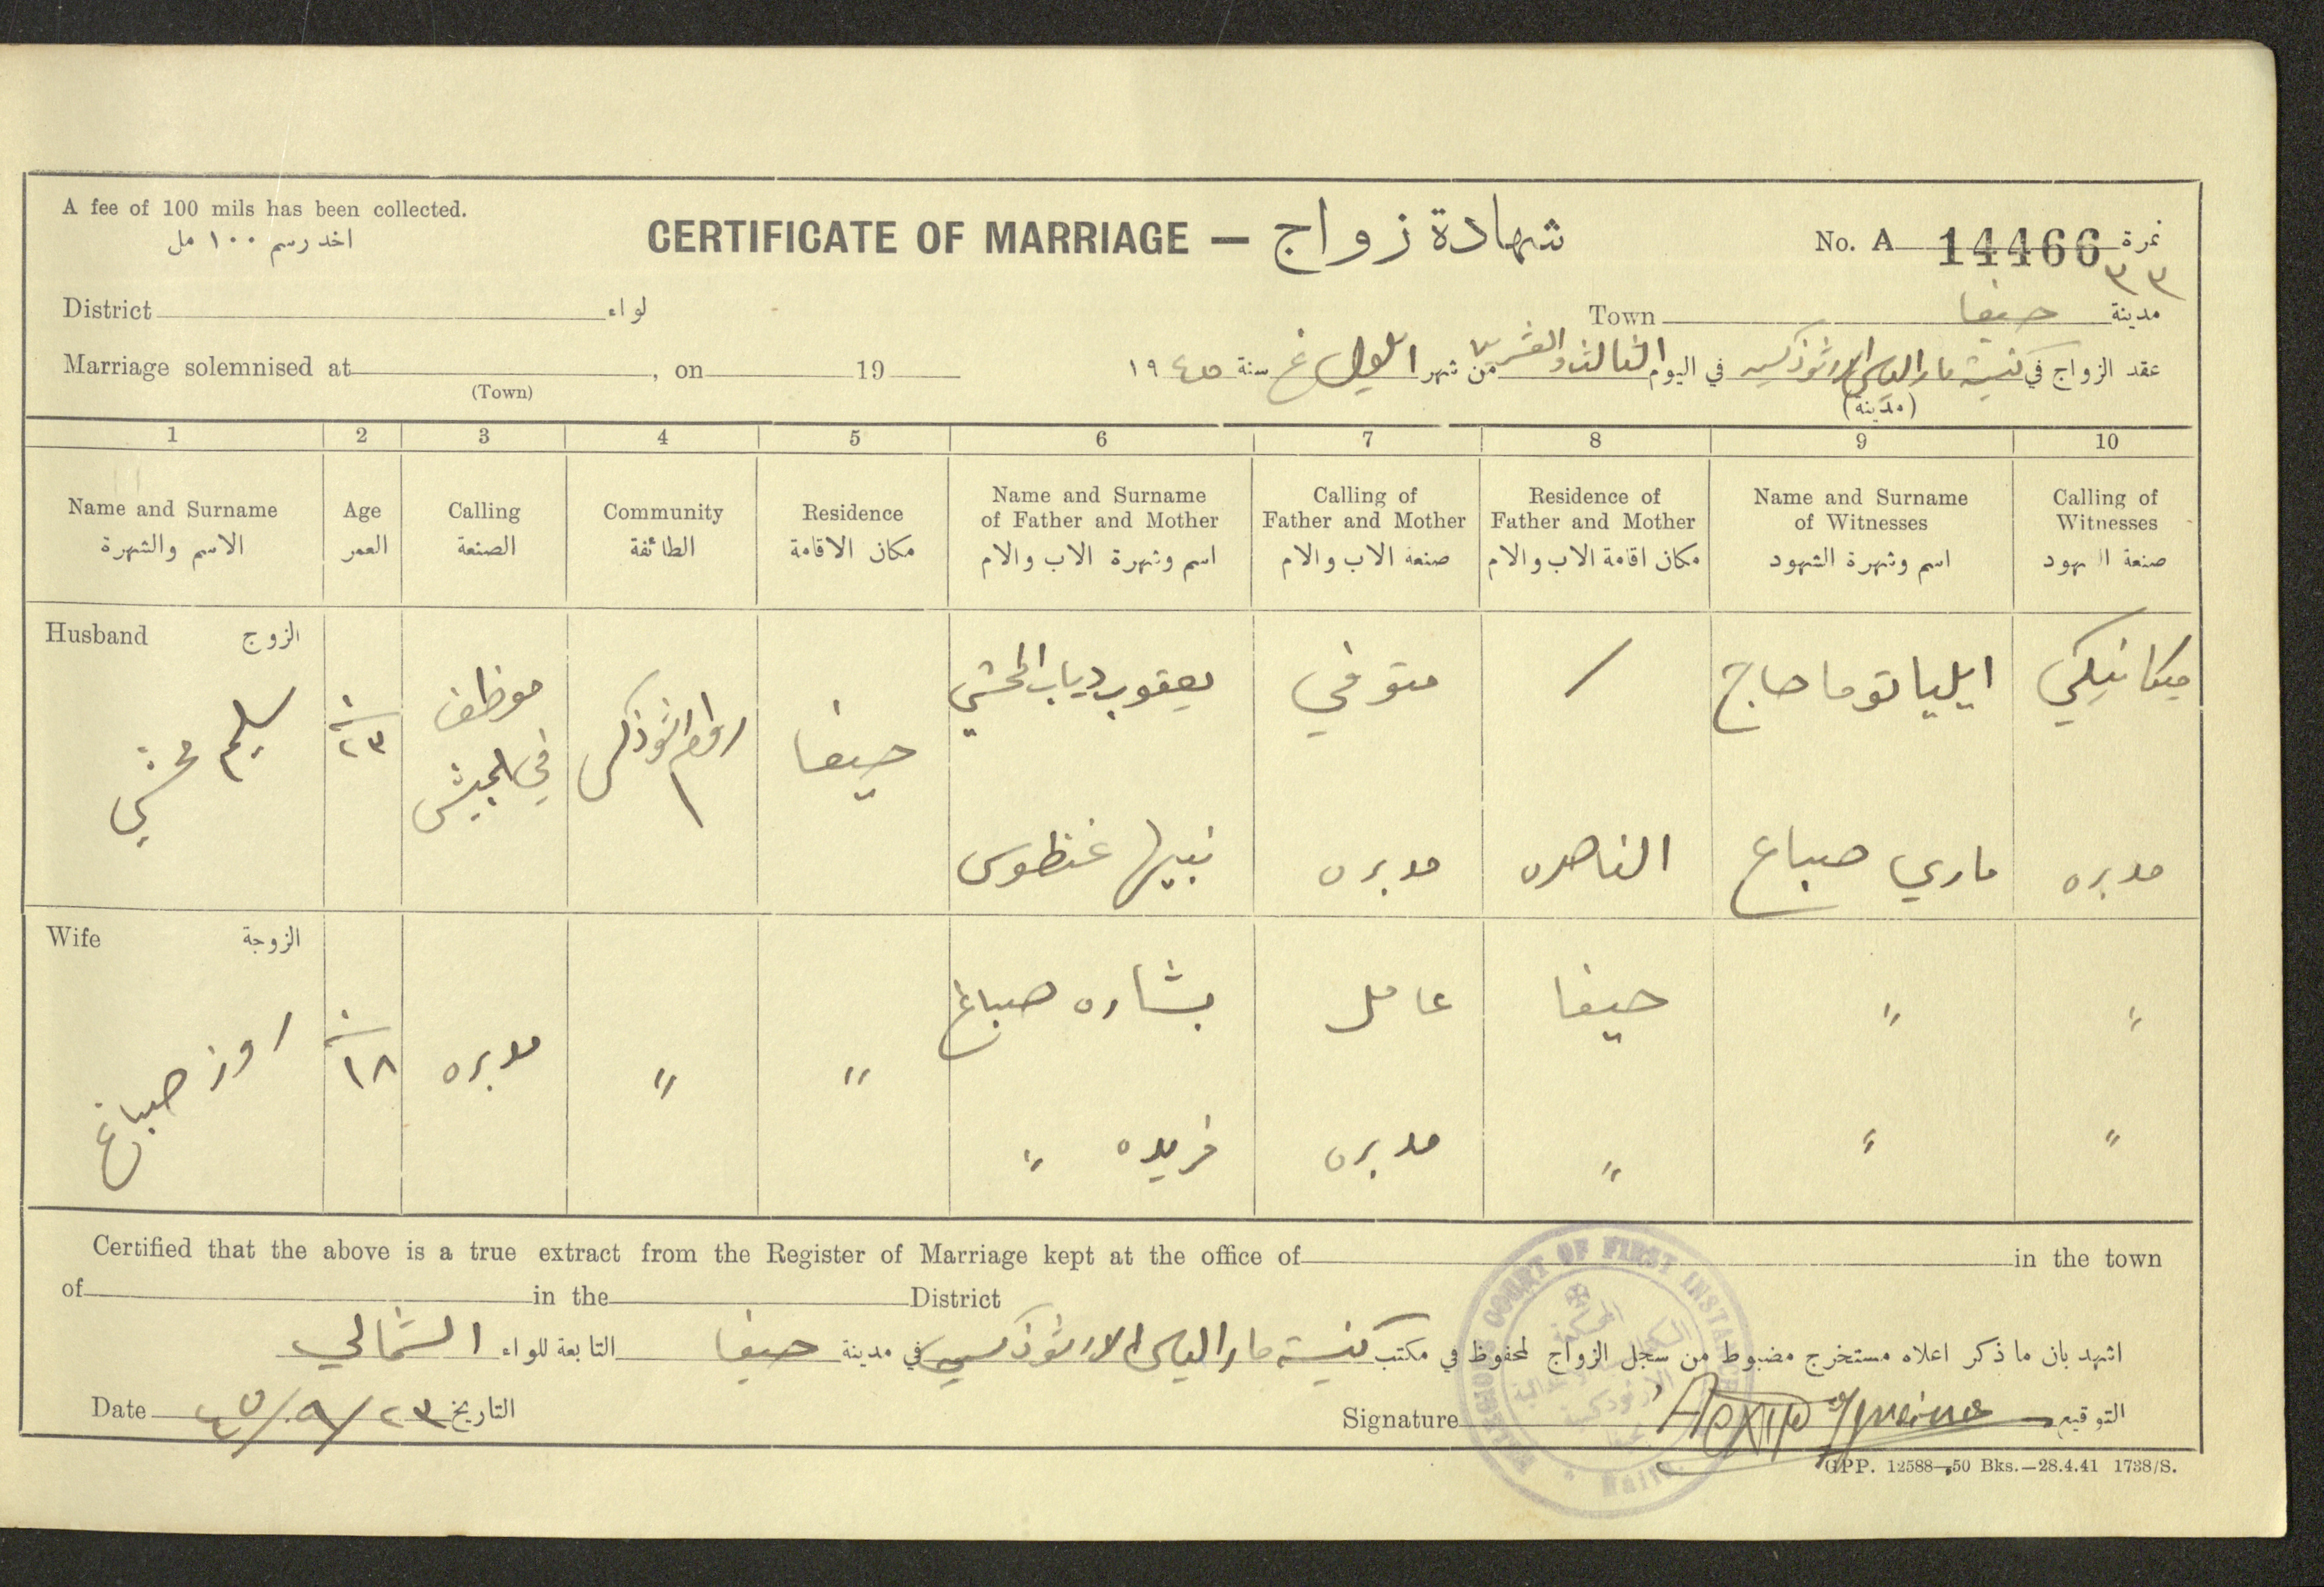 A fee of 100 mils has been collected.
اخد رسم ١٠٠ مل
CERTIFICATE OF MARRIAGE — شهادة زواج
No. A 14466 نمرة
٣٣
District لواء
Town حيفا مدينة
Marriage solemnised at , on 19
(Town)
عقد الزواج في كنيسة مار الياس الارثوذكسيه في اليوم الثالث والعشرين من شهر ايلول سنة ١٩٤٥
(مدينة)
1 2 3 4 5 6 7 8 9 10
Name and Surname الاسم والشهرة
Age العمر
Calling الصنعة
Community الطائفة
Residence مكان الاقامة
Name and Surname of Father and Mother اسم وشهرة الاب والام
Calling of Father and Mother صنعة الاب والام
Residence of Father and Mother مكان اقامة الاب والام
Name and Surname of Witnesses اسم وشهرة الشهود
Calling of Witnesses صنعة الشهود
Husband الزوج
سليم محشي
٢٣
موظف في الجيش
روم ارثوذكس
حيفا
يعقوب دياب المحشي
متوفي
/
ايليا توما حاج
ميكانيكي
نبيها غنطوس
مدبره
الناصره
ماري صباغ
مدبره
Wife الزوجة
روز صباغ
١٨
مدبره
"
"
بشاره صباغ
عامل
حيفا
"
"
فريده "
مدبره
"
"
"
Certified that the above is a true extract from the Register of Marriage kept at the office of in the town
of in the District
اشهد بان ما ذكر اعلاه مستخرج مضبوط من سجل الزواج المحفوظ في مكتب كنيسة مار الياس الارثوذكسيه في مدينة حيفا التابعة للواء الشمالي
Date ٢٣/٩/٤٥ التاريخ
Signature التوقيع
COURT OF FIRST INSTANCE
Haifa
GPP. 12588—50 Bks.—28.4.41 1738/S.